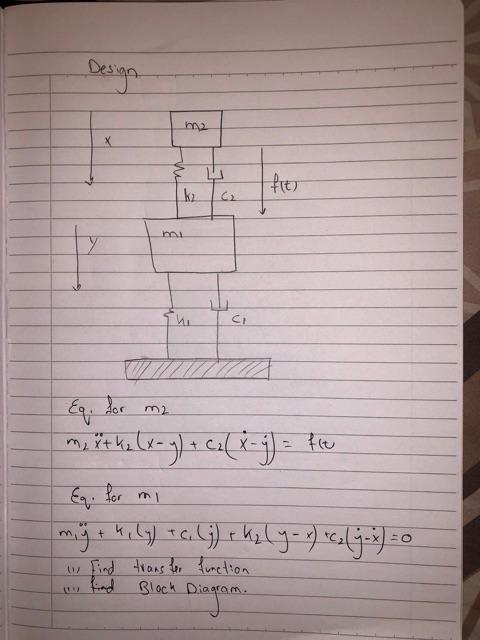 Design
m2
x
k2
c2
f(t)
y
m1
k1
c1
Eq. for m2
m2 ẍ + k2(x-y) + c2(ẋ-ẏ) = f(t
Eq. for m1
m1ÿ + k1(y) + c1(ẏ) + k2(y-x) + c2(ẏ-ẋ) = 0
(i) Find transfer function
(ii) find Block Diagram.